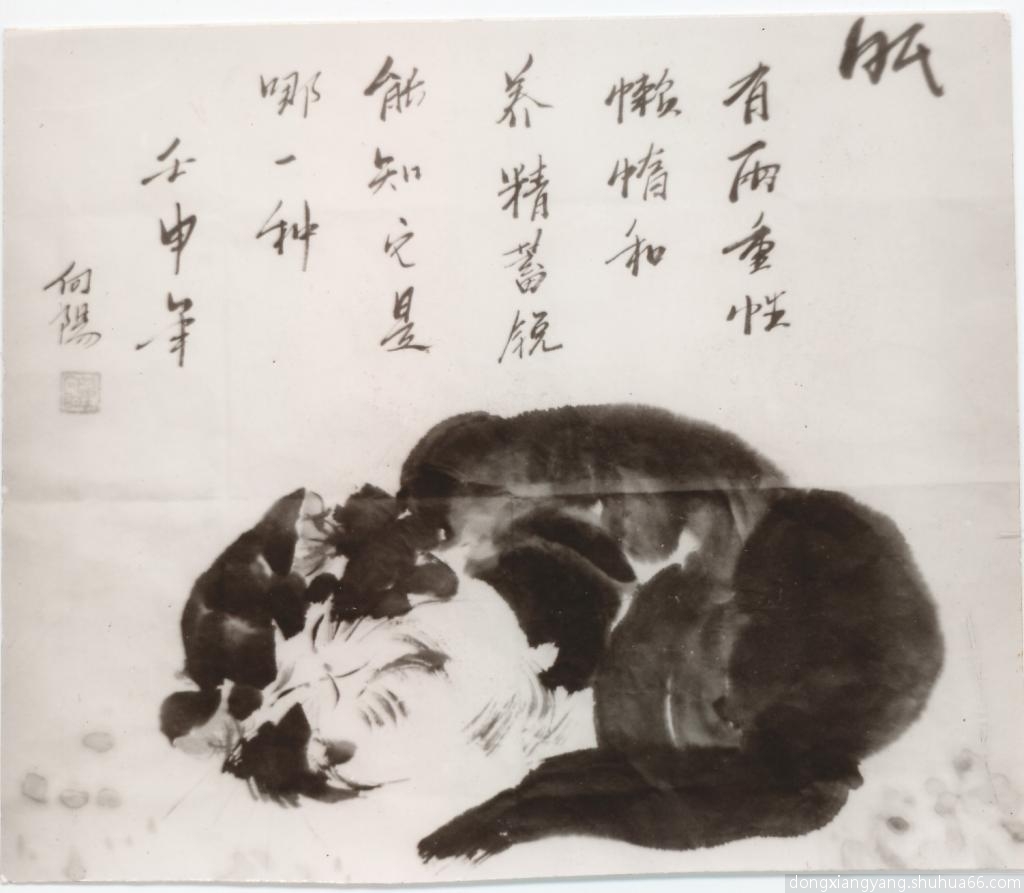 眠
有两重性
懒惰和
养精蓄锐
能知它是
哪一种
壬申年
向陽
dongxiangyang.shuhua66.com